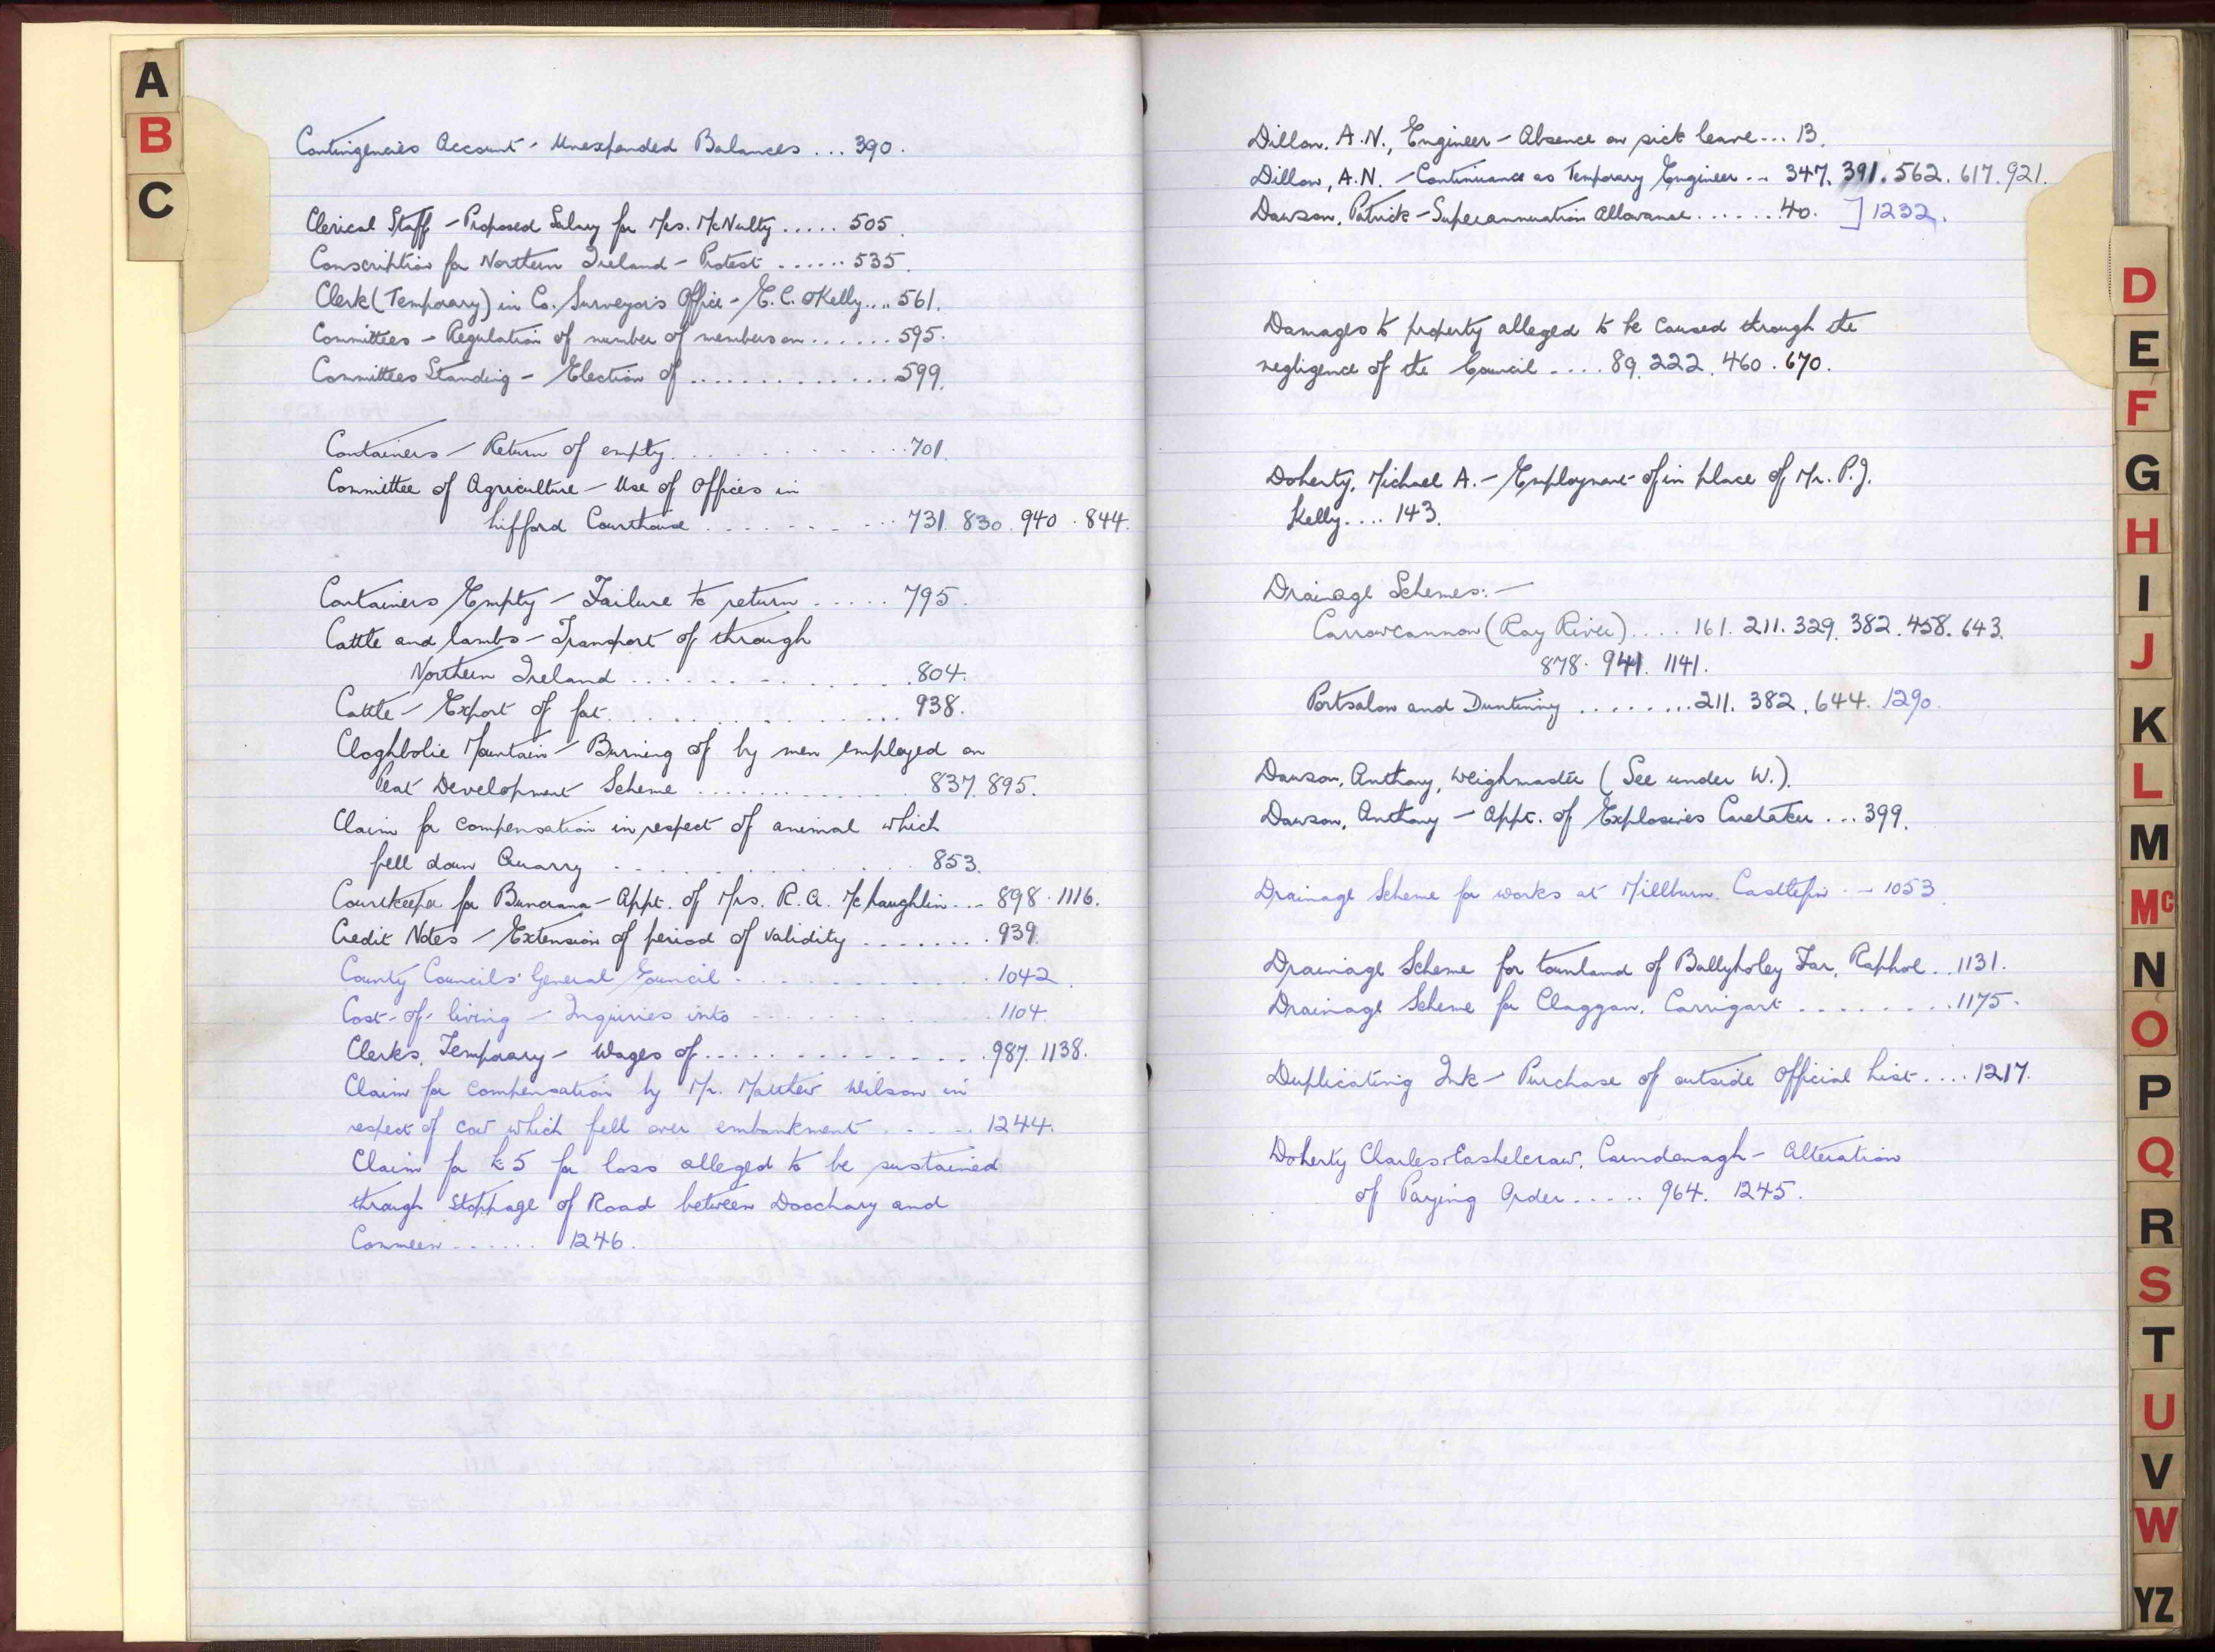 A
B
C
Contingencies Account - Unexpended Balances ... 390.
Clerical Staff - Proposed Salary for Mrs. McNulty ..... 505.
Conscription for Northern Ireland - Protest ...... 535.
Clerk (Temporary) in Co. Surveyor's Office - E.C. O'Kelly .... 561.
Committees - Regulation of number of members on ...... 595.
Committees Standing - Election of .............. 599.
Containers - Return of empty ........... 701.
Committee of Agriculture - Use of Offices in
Lifford Courthouse ......... 731. 830. 940. 844.
Containers Empty - Failure to return ..... 795.
Cattle and lambs - Transport of through
Northern Ireland ............ 804.
Cattle - Export of fat ............. 938.
Cloghbolie Mountain - Burning of by men employed on
Peat Development Scheme ............ 837. 895.
Claim for compensation in respect of animal which
fell down Quarry ............ 853.
Courtkeeper for Buncrana - Appt. of Mrs. R. A. McLaughlin ... 898. 1116.
Credit Notes - Extension of period of validity ........ 939.
County Councils' General Council ............ 1042.
Cost-of-living - Inquiries into .......... 1104.
Clerks, Temporary - Wages of ............. 987. 1138.
Claim for compensation by Mr. Matthew Wilson in
respect of cow which fell over embankment ..... 1244.
Claim for £5 for loss alleged to be sustained
through stoppage of Road between Doochary and
Commeen ...... 1246.
Dillon, A.N., Engineer - Absence on sick leave ... 13.
Dillon, A.N. - Continuance as Temporary Engineer ... 347. 391. 562. 617. 921.
Dawson, Patrick - Superannuation Allowance ...... 40. ] 1232.
Damages to property alleged to be caused through the
negligence of the Council .... 89. 222. 460. 670.
Doherty, Michael A. - Employment of in place of Mr. P.J.
Kelly .... 143.
Drainage Schemes:-
Carrowcannon (Ray River) .... 161. 211. 329. 382. 458. 643.
878. 941. 1141.
Portsalon and Duntinny ........ 211. 382. 644. 1290.
Dawson, Anthony, Weighmaster (See under W.).
Dawson, Anthony - Appt. of Explosives Caretaker ... 399.
Drainage Scheme for works at Millburn, Castlefin .. 1053.
Drainage Scheme for townland of Ballyholey Far, Raphoe .. 1131.
Drainage Scheme for Claggan, Carrigart ........ 1175.
Duplicating Ink - Purchase of outside Official List .... 1217.
Doherty Charles, Carndonagh - Alteration
of Paying Order ..... 964. 1245.
D
E
F
G
H
I
J
K
L
M
Mc
N
O
P
Q
R
S
T
U
V
W
YZ